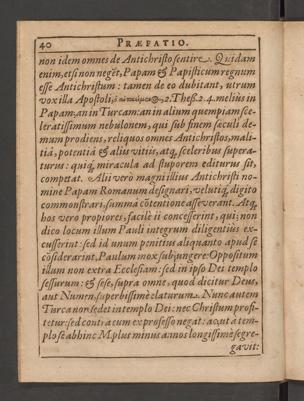 40 PRÆFATIO.
non idem omnes de Antichristo sentire. Quidam
enim, etsi non negēt, Papam & Papisticum regnum
esse Antichristum: tamen de eo dubitant, utrum
vox illa Apostoli, 2. Thess. 2. 4. melius in
Papam, an in Turcam: an in alium quempiam sce-
leratissimum nebulonem, qui sub finem sæculi de-
mum prodiens, reliquos omnes Antichristos, mali-
tiâ, potentiâ & aliis vitiis, atq; sceleribus supera-
turus: quiq; miracula ad stuporem editurus sit,
competat. Alii verò magni illius Antichristi no-
mine Papam Romanum designari, velutiq; digito
commonstrari, summâ cōtentione asseverant. Atq;
hos vero propiores, facilè ii concesserint, qui; non
dico locum illum Pauli integrum diligentius ex-
cusserint: sed id unum penitius aliquanto apud se
cōsiderarint, Paulum mox subjungere: Oppositum
illum non extra Ecclesiam: sed in ipso Dei templo
sessurum: & sese, supra omne, quod dicitur Deus,
aut Numen, superbissimè elaturum. Nunc autem
Turca non sedet in templo Dei: nec Christum profi-
tetur: sed contra eum ex professo negat: ac ut à tem-
plo se abhinc M. plus minus annos longissimè segre-
gavit: